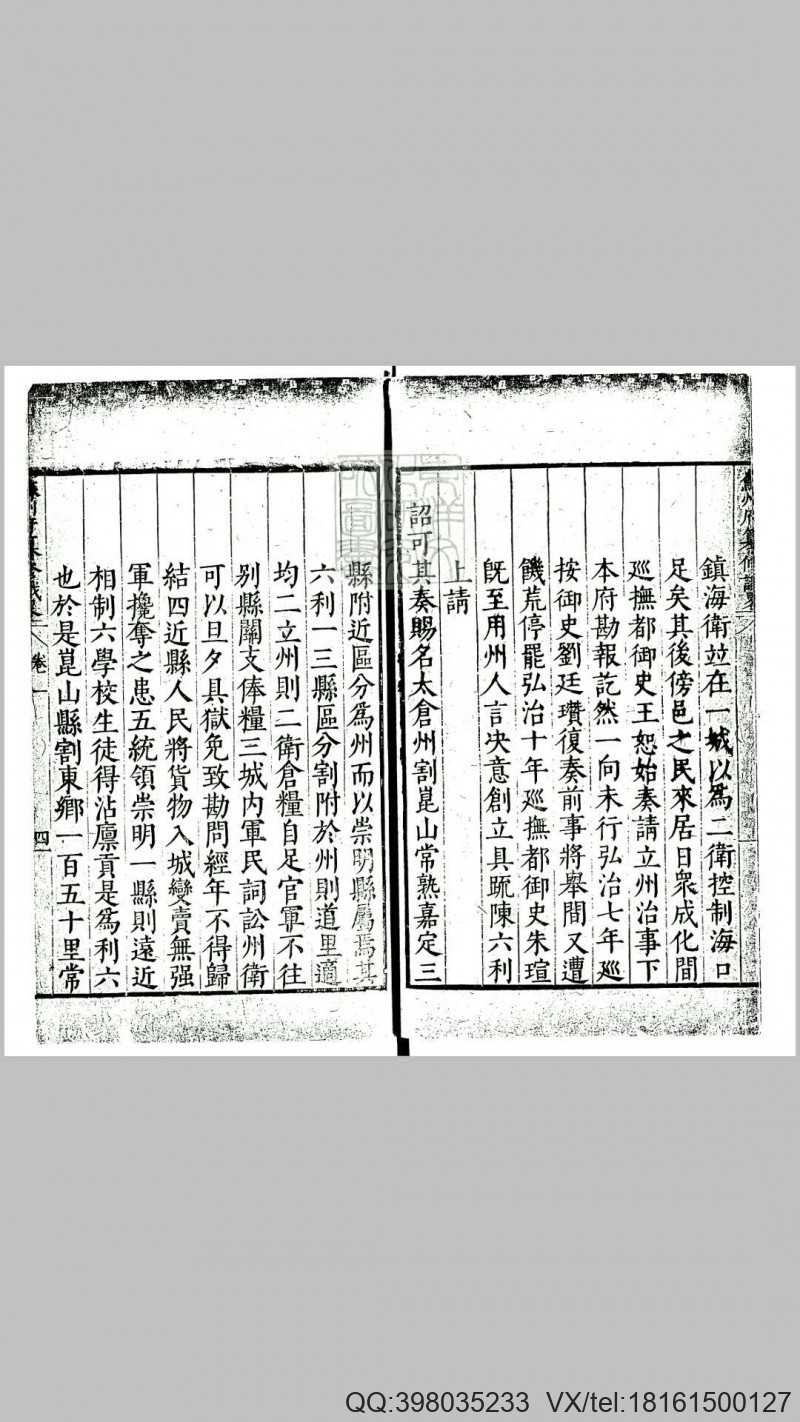 鎮海衛竝在一城以爲二衛控制海口
足矣其後傍邑之民來居日衆成化間
廵撫都御史王恕始奏請立州治事下
本府勘報訖然一向未行弘治七年廵
按御史劉廷瓚復奏前事將舉間又遭
饑荒停罷弘治十年廵撫都御史朱瑄
旣至用州人言决意創立具䟽陳六利
上請
詔可其奏賜名太倉州割崑山常熟嘉定三
縣附近區分爲州而以崇明縣屬焉其
六利一三縣區分割附於州則道里適
均二立州則二衛倉糧自足官軍不往
别縣關支俸糧三城内軍民詞訟州衛
可以旦夕具獄免致勘問經年不得歸
結四近縣人民將貨物入城變賣無强
軍攙奪之患五統領崇明一縣則遠近
相制六學校生徒得沾廩貢是爲利六
也於是崑山縣割東鄉一百五十里常
卷一
四
QQ:398035233 VX/tel:18161500127